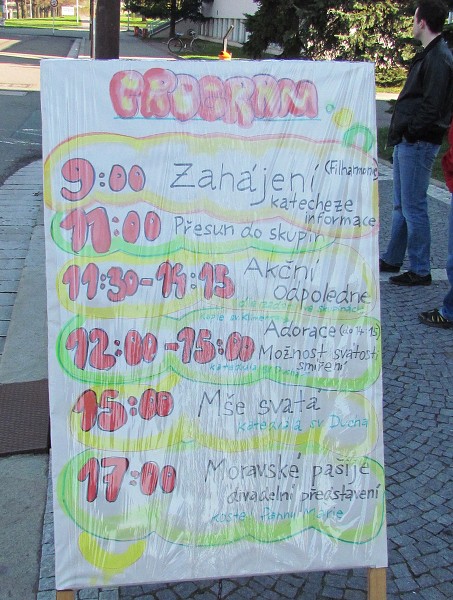 PROGRAM
9:00 Zahájení (Filharmonie)
katecheze
informace
11:00 Přesun do skupin
11:30-14:15 Akční
odpoledne
12:00-15:00 Adorace (do 14:15)
Možnost svátosti
smíření
15:00 Mše svatá
katedrála sv Ducha
17:00 Moravské pašije
divadelní představení
kostel Panny Marie